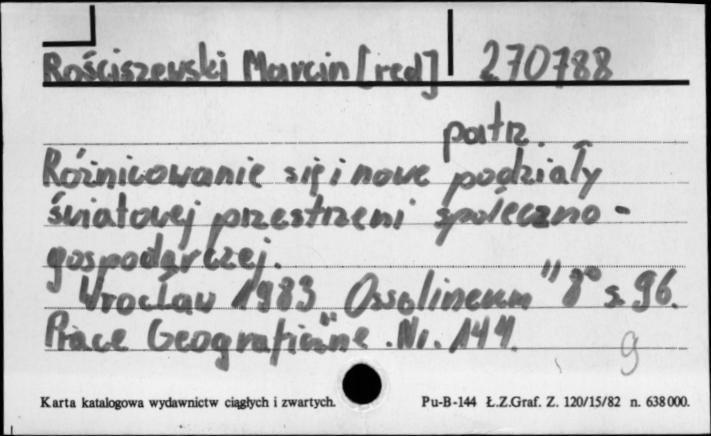 Rościszewski Marcin [red] 270788
patrz
Różnicowanie się i nowe podziały
światowej przestrzeni społeczno-
gospodarczej.
Wrocław 1983 Ossolineum "8° s. 96.
Prace Geograficzne". Nr. 144.
9
Karta katalogowa wydawnictw ciągłych i zwartych. Pu-B-144 Ł.Z.Graf. Z. 120/15/82 n. 638000.